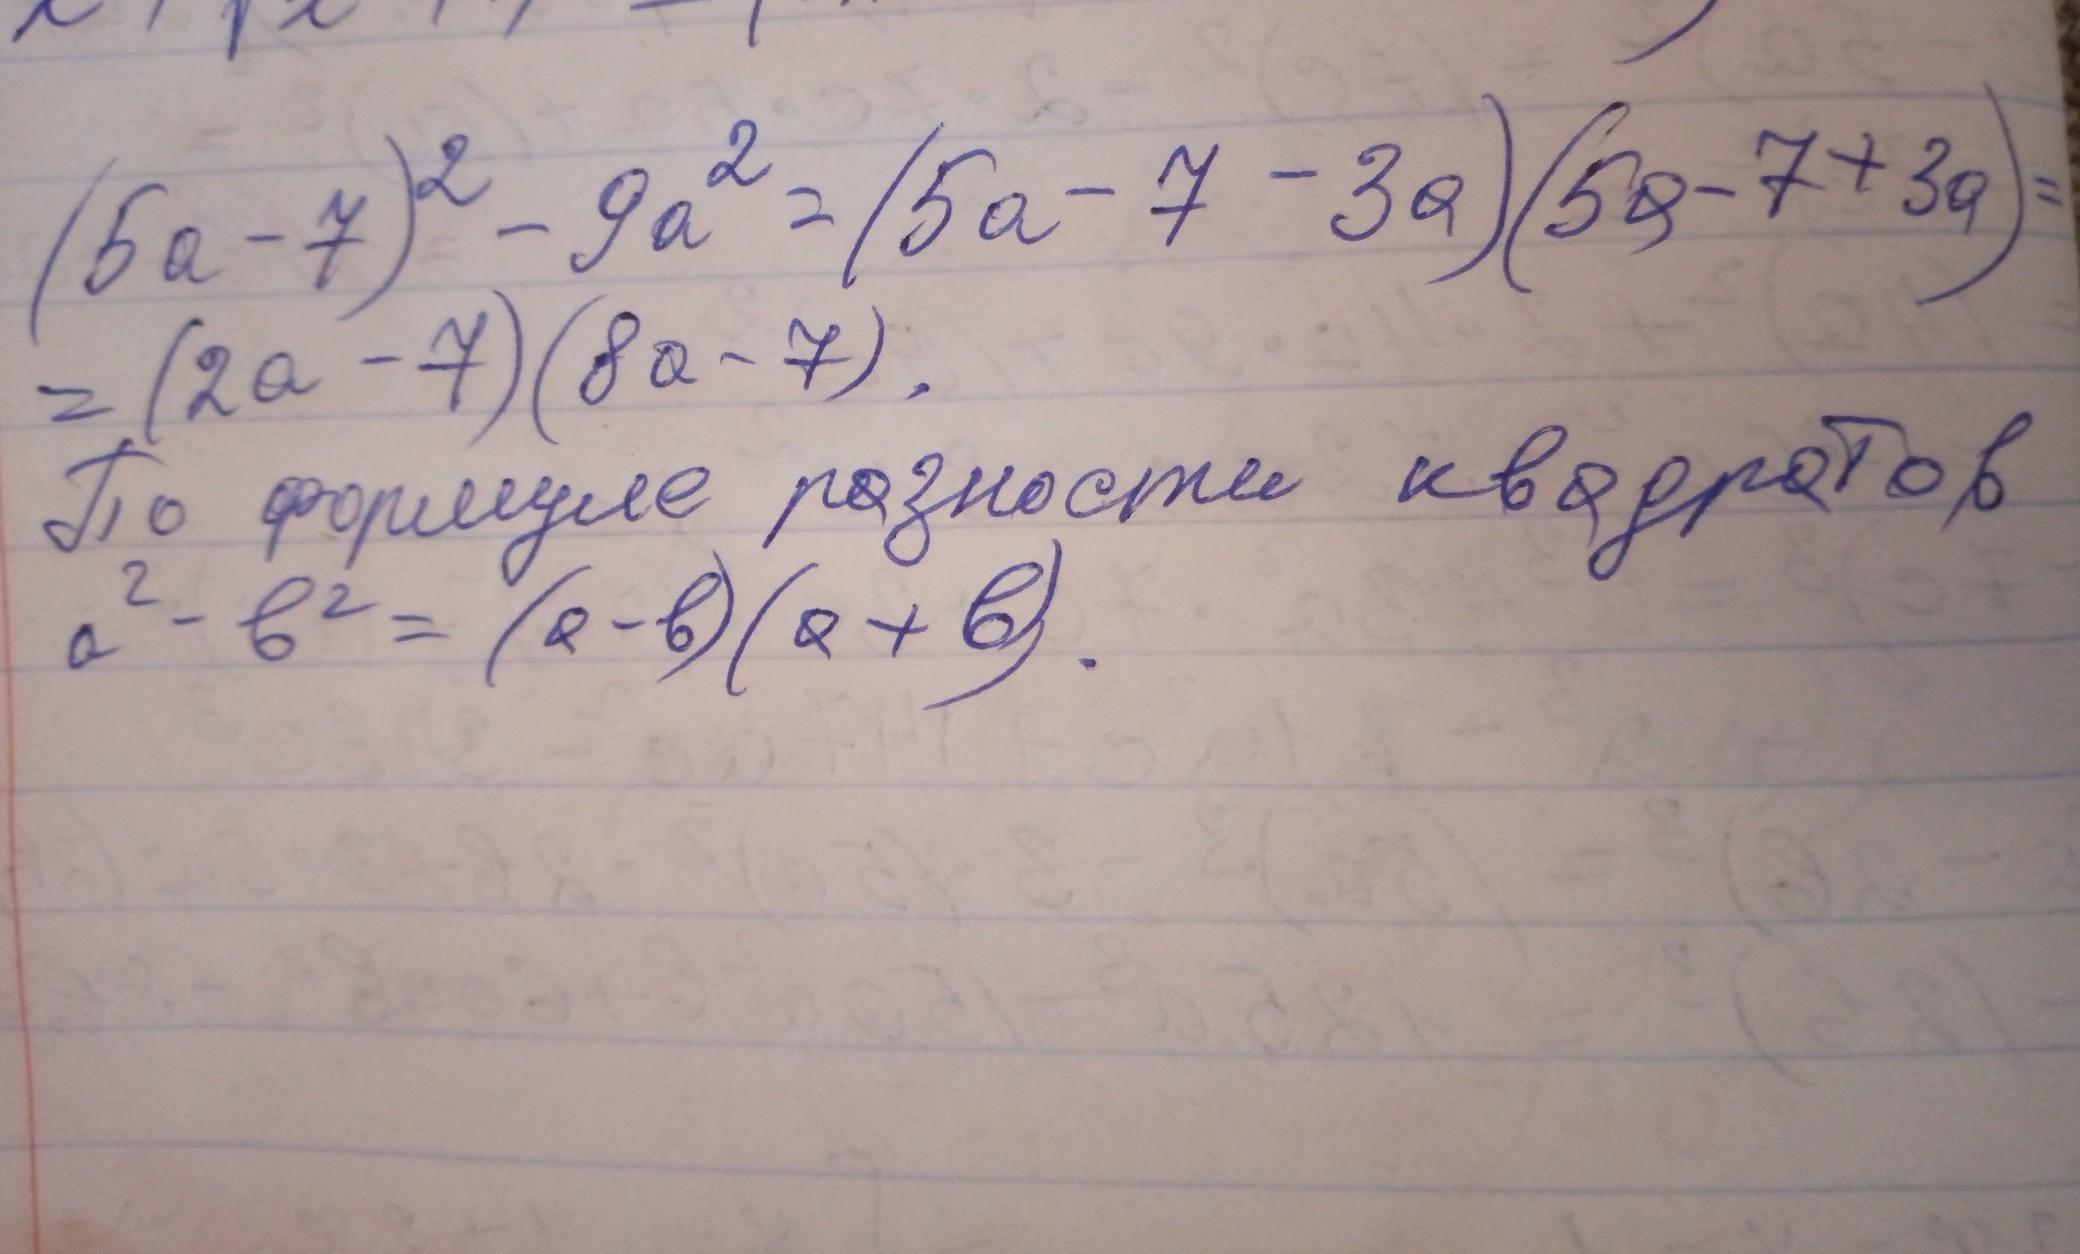 (5a-7)² - 9a² = (5a - 7 - 3a)(5a - 7 + 3a) =
= (2a - 7)(8a - 7).
По формуле разности квадратов
a² - b² = (a - b)(a + b).